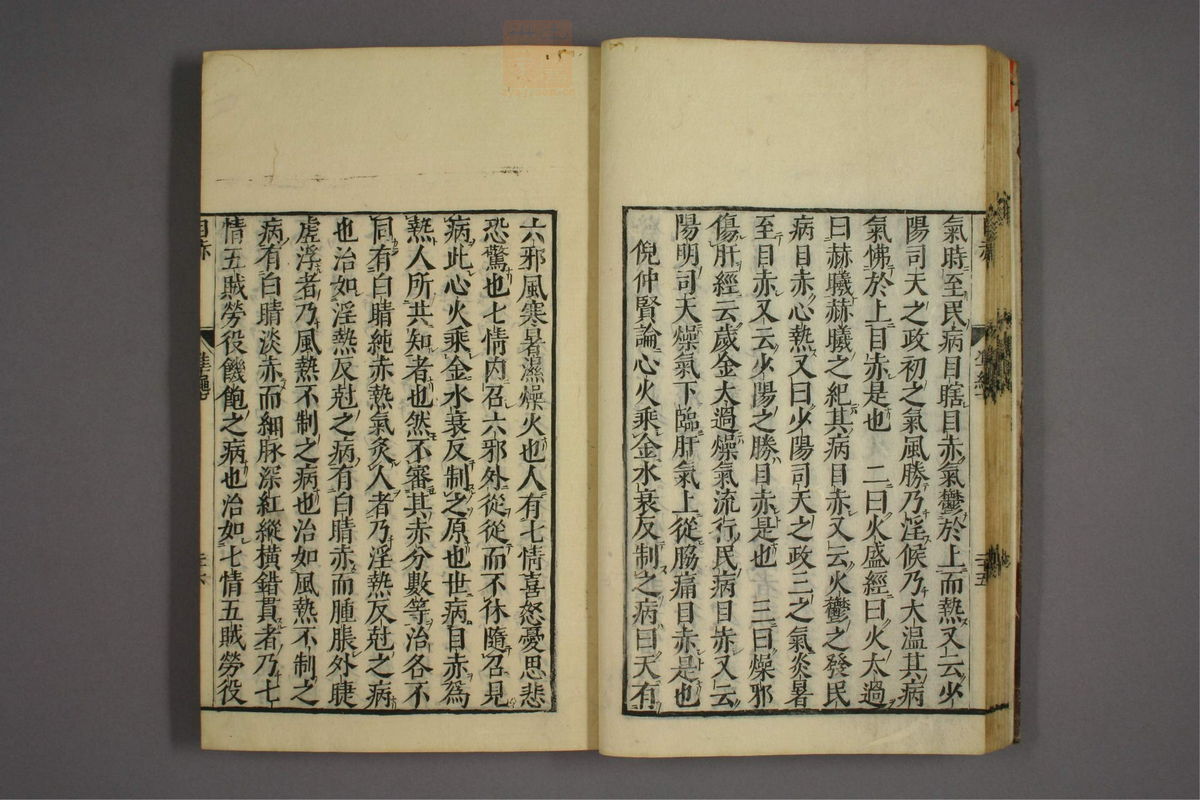 氣時至民病目瞎目赤氣鬱於上而熱又云少
陽司天之政初之氣風勝乃淫候乃大温其病
氣怫於上目赤是也　二曰火盛經曰火太過
曰赫曦赫曦之紀其病目赤又云火鬱之發民
病目赤心熱又曰少陽司天之政三之氣炎暑
至目赤又云少陽之勝目赤是也　三曰燥邪
傷肝經云歲金太過燥氣流行民病目赤又云
陽明司天燥氣下臨肝氣上從脇痛目赤是也
倪仲賢論心火乘金水衰反制之病曰天有
六邪風寒暑濕燥火也人有七情喜怒憂思悲
恐驚也七情内召六邪外從從而不休隨召見
病此心火乘金水衰反制之原也世病目赤爲
熱人所共知者也然不審其赤分數等治各不
同有白睛純赤熱氣灸人者乃淫熱反尅之病
也治如淫熱反尅之病有白睛赤而腫脹外睫
虚浮者乃風熱不制之病也治如風熱不制之
病有白睛淡赤而細脉深紅縱橫錯貫者乃七
情五賊勞役饑飽之病也治如七情五賊勞役
目赤